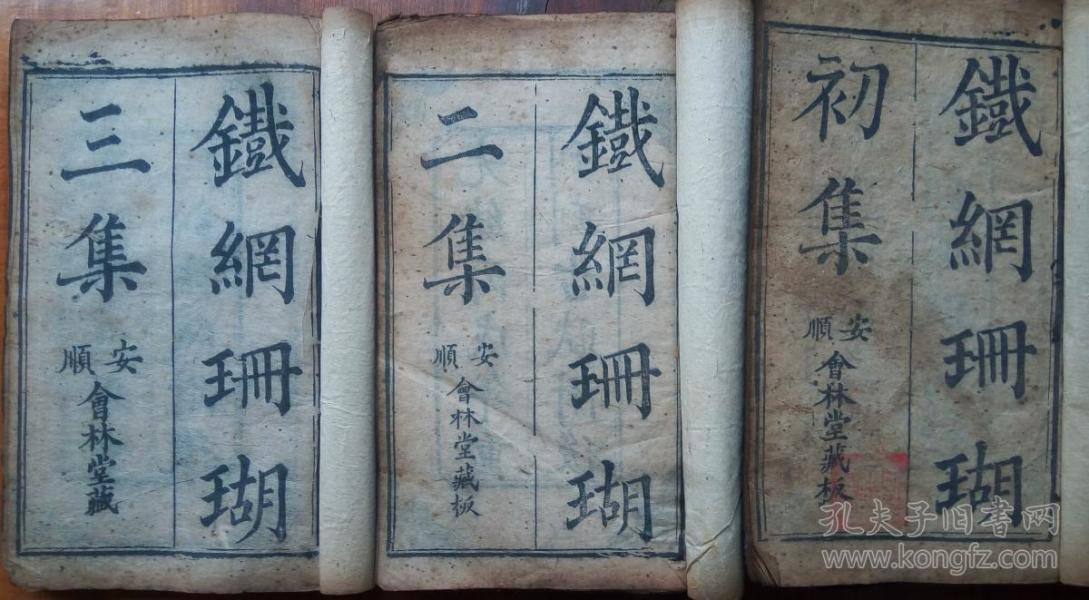 鐵網珊瑚
初集
安順
會林堂藏板
鐵網珊瑚
二集
安順
會林堂藏板
鐵網珊瑚
三集
安順
會林堂藏
孔夫子旧書网
www.kongfz.com